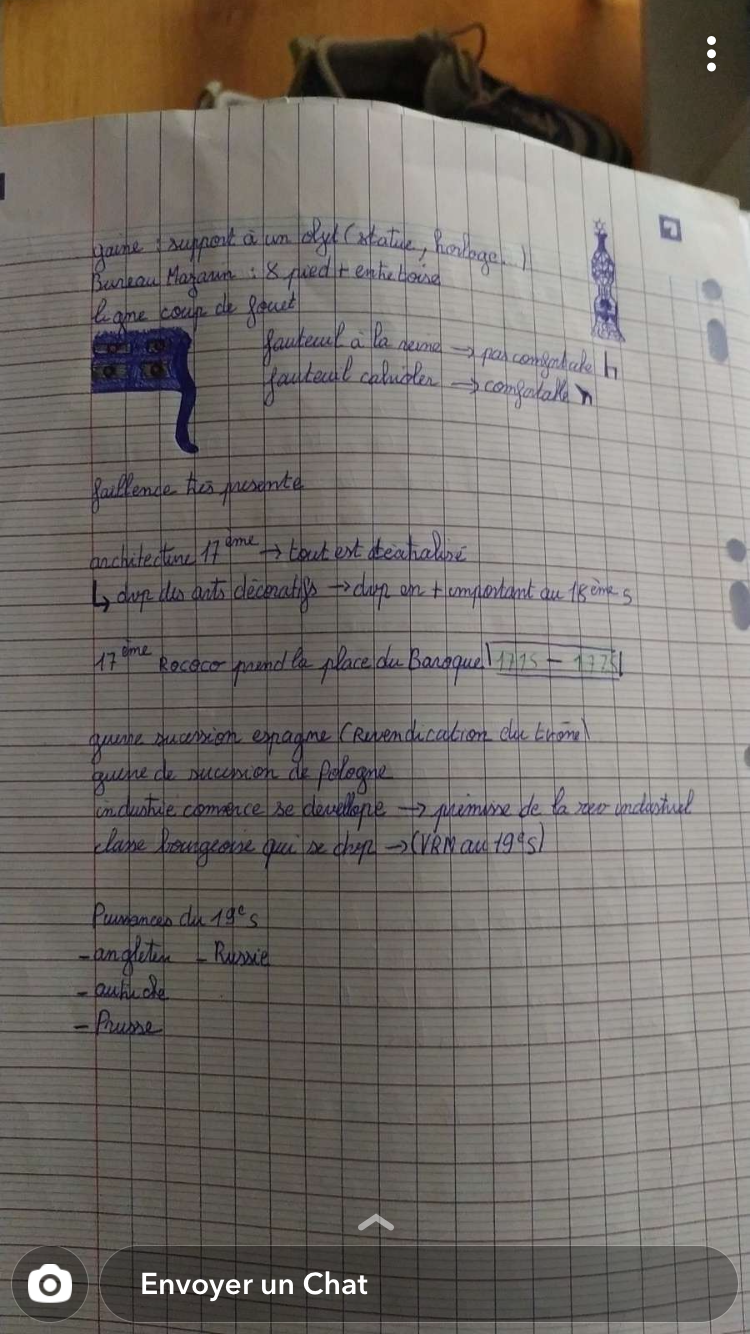 gaine : support à un objet (statue, horloge..)
Bureau Mazarin : 8 pied + entretoise
ligne coup de fouet
fauteuil à la reine → pas comfortable h
fauteuil cabriolet → comfortable
faillence très presente
architecture 17ème → tout est théatralisé
↳ dvp des arts décoratifs → dvp en + important au 18ème s
17ème Rococo prend la place du Baroque
guerre sucession espagne (Revendication du trône)
guerre de sucession de Pologne
industrie comerce se dévellope → prémisse de la industriel
classe bourgeoise qui se dvp → (VRM au 19e s)
Puissances du 19e s
- angleterr - Russie
- autriche
- Prusse
Envoyer un Chat